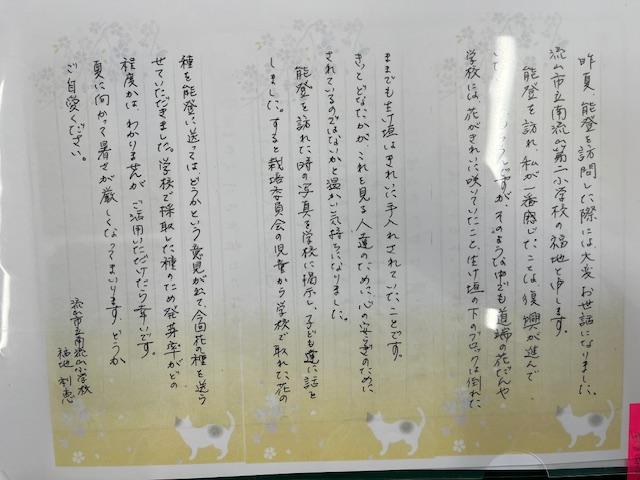 昨夏、能登を訪問した際には、大変お世話になりました。
流山市立南流山第二小学校の福地と申します。
能登を訪れ、私が一番感じたことは復興が進んで
いた ですが、そのような中でも道端の花だんや
学校には、花がきれいに咲いていたこと、生け垣の下のブロックは倒れた
ままでも生け垣はきれいに手入れされていたことです。
きっとどなたかが、これを見る人達のために、心の安らぎのために
されているのではないかと温かい気持ちになりました。
能登を訪れた時の写真を学校に掲示し、子ども達に話を
しました。すると栽培委員会の児童から学校で取れた花の
種を能登に送ってはどうかという意見がでて、今回花の種を送ら
せていただきました。学校で採取した種のため発芽率がどの
程度かは、わかりませんが、ご活用いただけたら幸いです。
夏に向かって暑さが厳しくなってまいります。どうか
ご自愛ください。
流山市立南流山小学校
福地 利恵